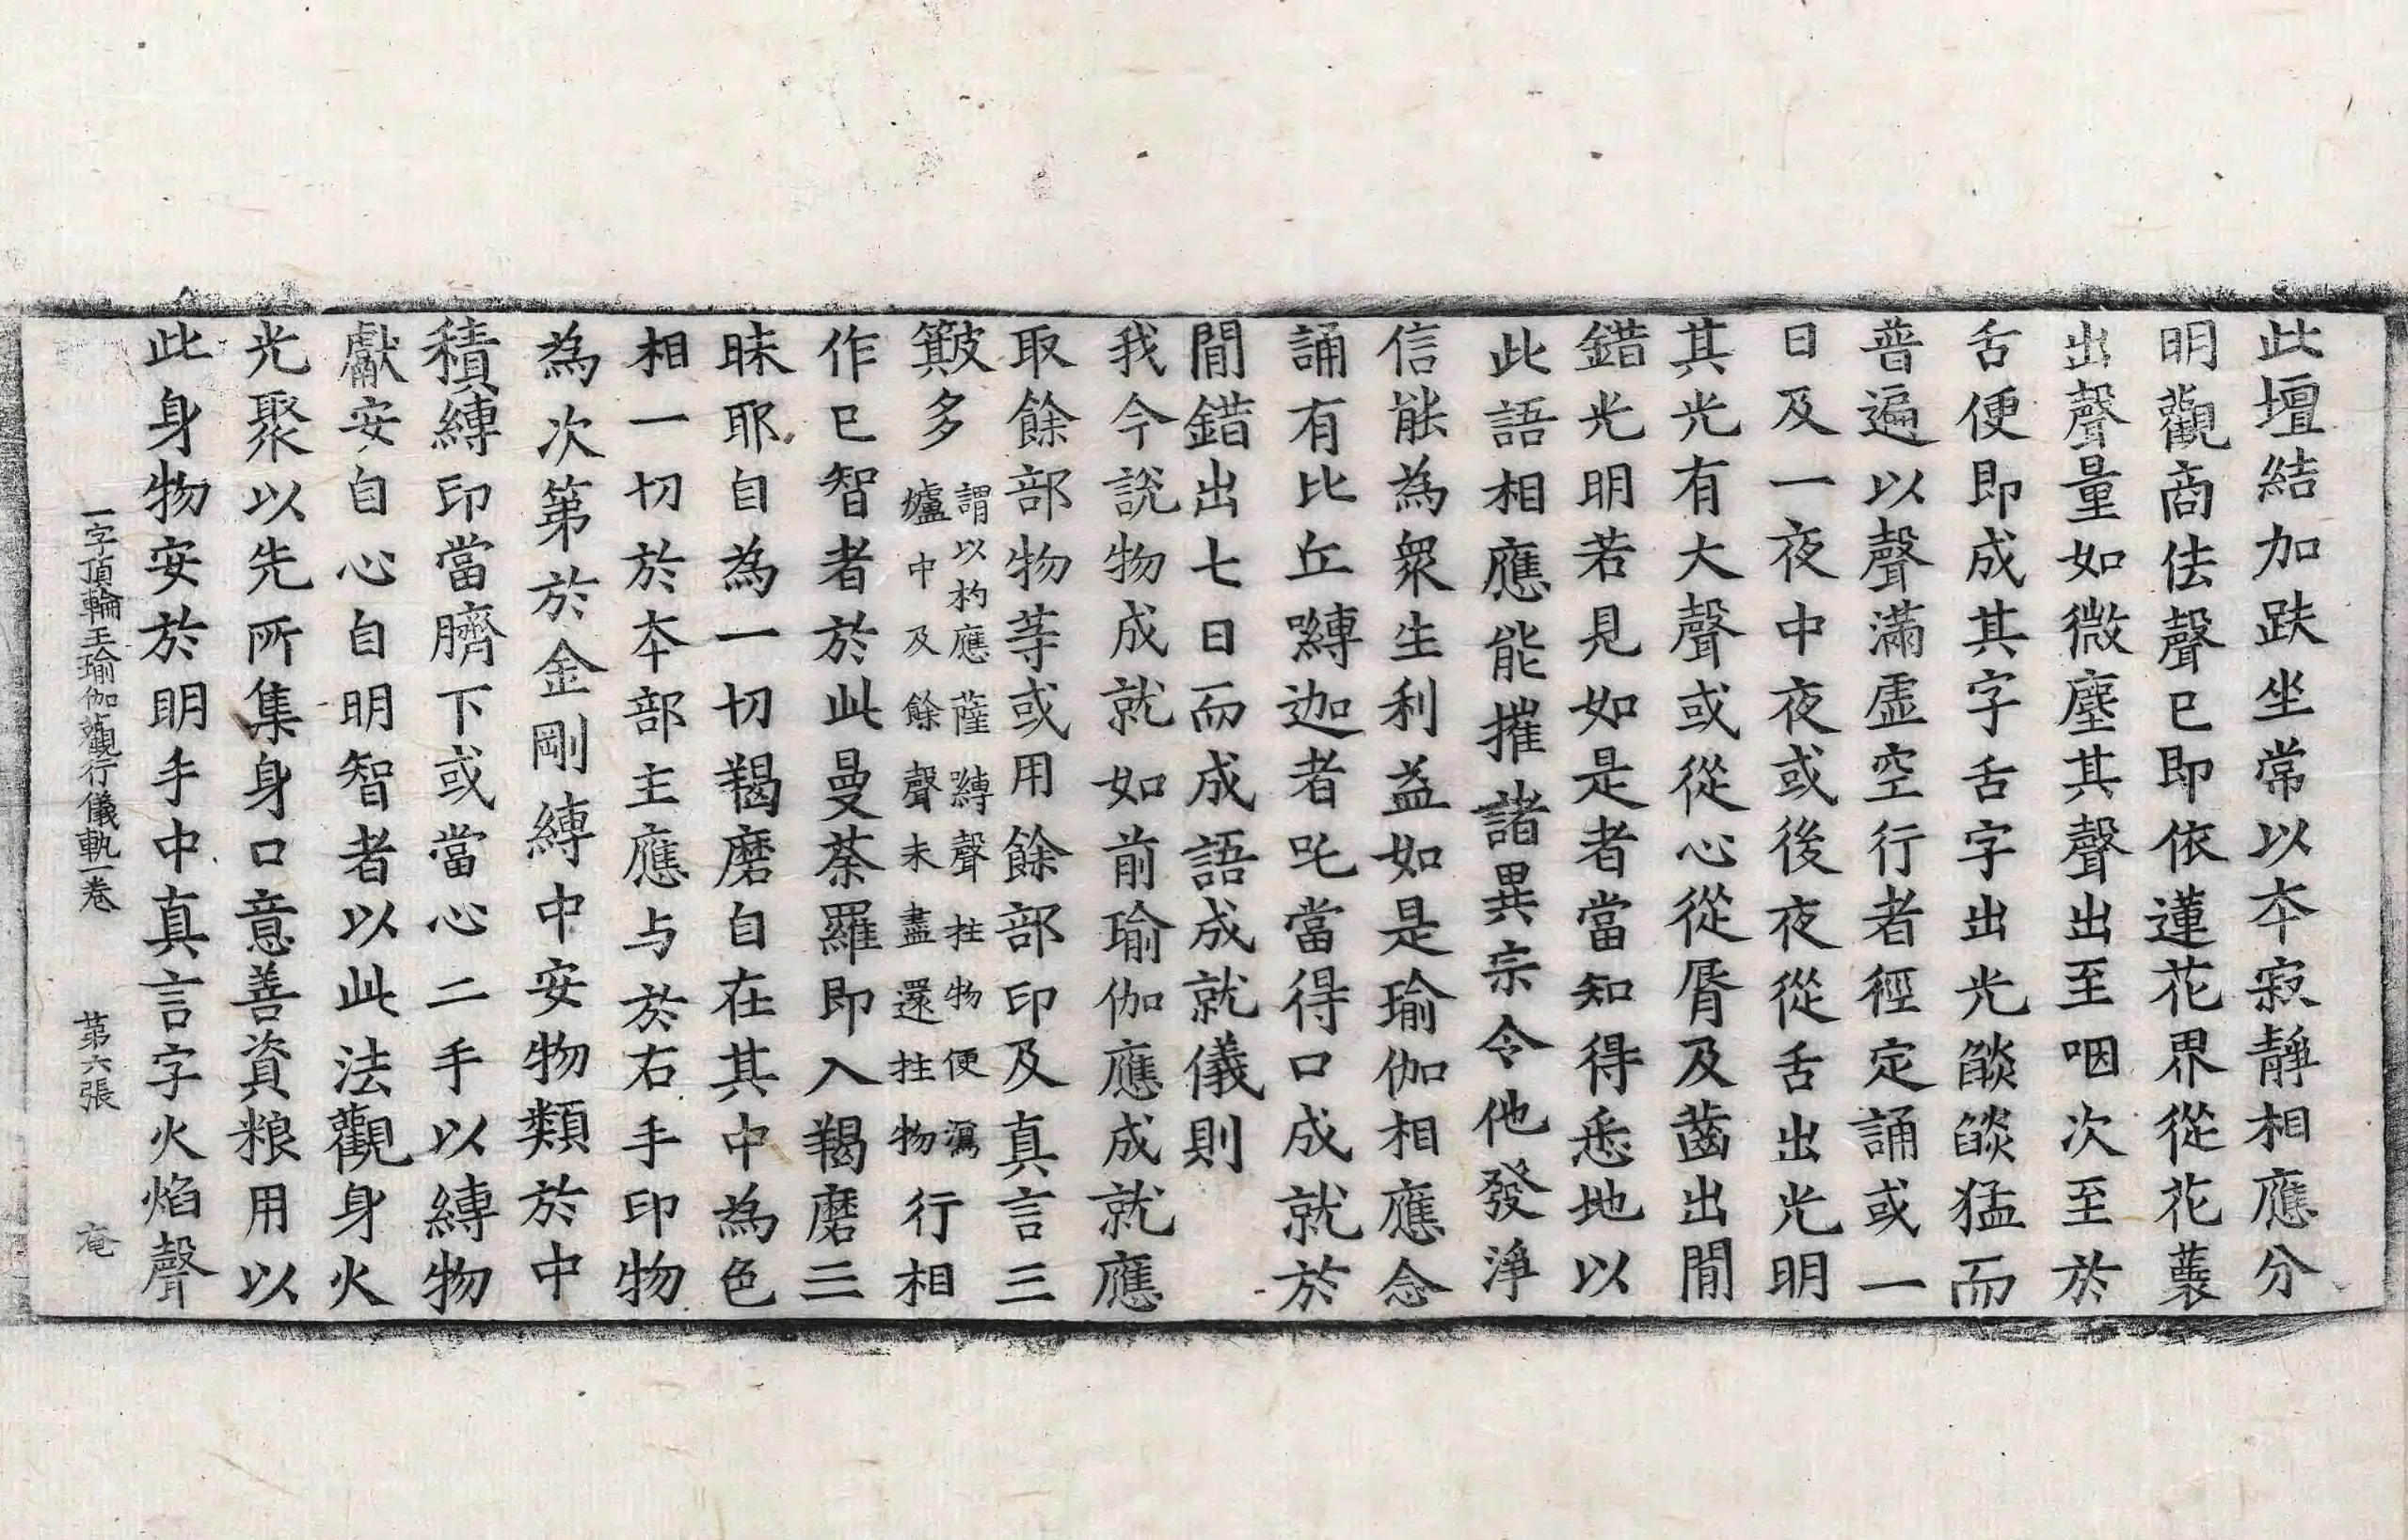 此壇結加趺坐常以本寂靜相應分
明觀商佉聲已即依蓮花界從花蘂
出聲量如微塵其聲出至咽次至於
舌便即成其字舌字出光燄燄猛而
普遍以聲滿虛空行者徑定誦或一
日及一夜中夜或後夜從舌出光明
其光有大聲或從心從脣及齒出間
錯光明若見如是者當知得悉地以
此語相應能摧諸異宗令他發淨
信能為衆生利益如是瑜伽相應念
誦有比丘囀迦者吒當得口成就於
間錯出七日而成語成就儀則
我今說物成就如前瑜伽應成就應
取餘部物等或用餘部印及真言三
簸多謂以杓應薩嚩聲拄物便瀉
爐中及餘聲未盡還拄物行相
作已智者於此曼荼羅即入羯磨三
昧耶自為一切羯磨自在其中為色
相一切於本部主應与於右手印物
為次第於金剛縛中安物類於中
積縛印當臍下或當心二手以縛物
獻安自心自明智者以此法觀身火
光聚以先所集身口意善資粮用以
此身物安於明手中真言字火焰聲
一字頂輪王瑜伽觀行儀軌一卷 第六張 竜